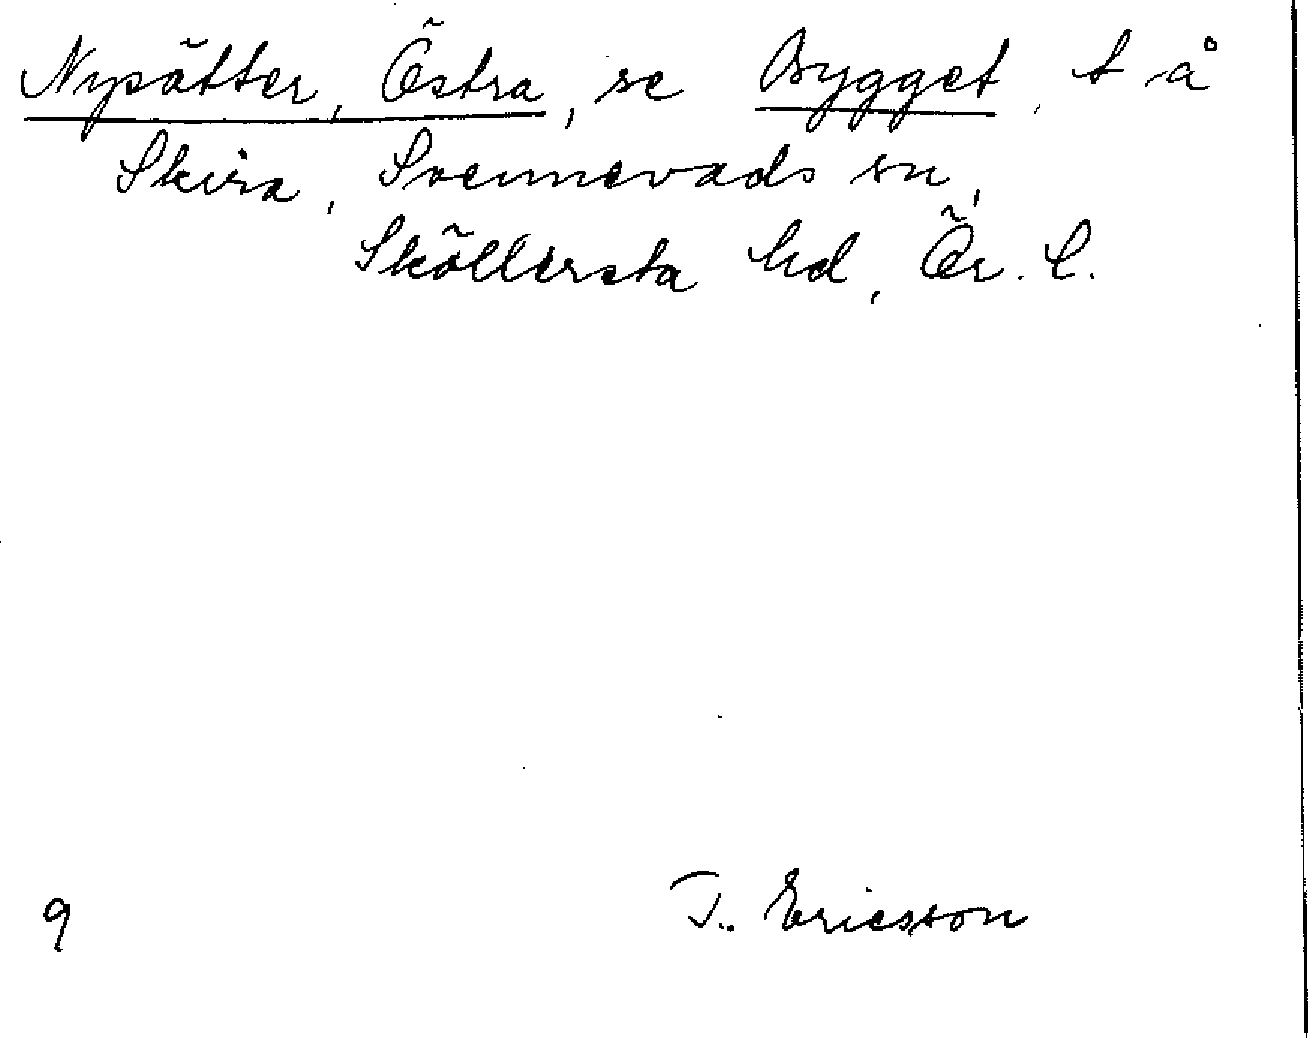 Nysätter, Östra, se Bygget, t å
Skira, Svennevads sn,
Sköllersta hd, Ör. l.
T. Ericsson
9